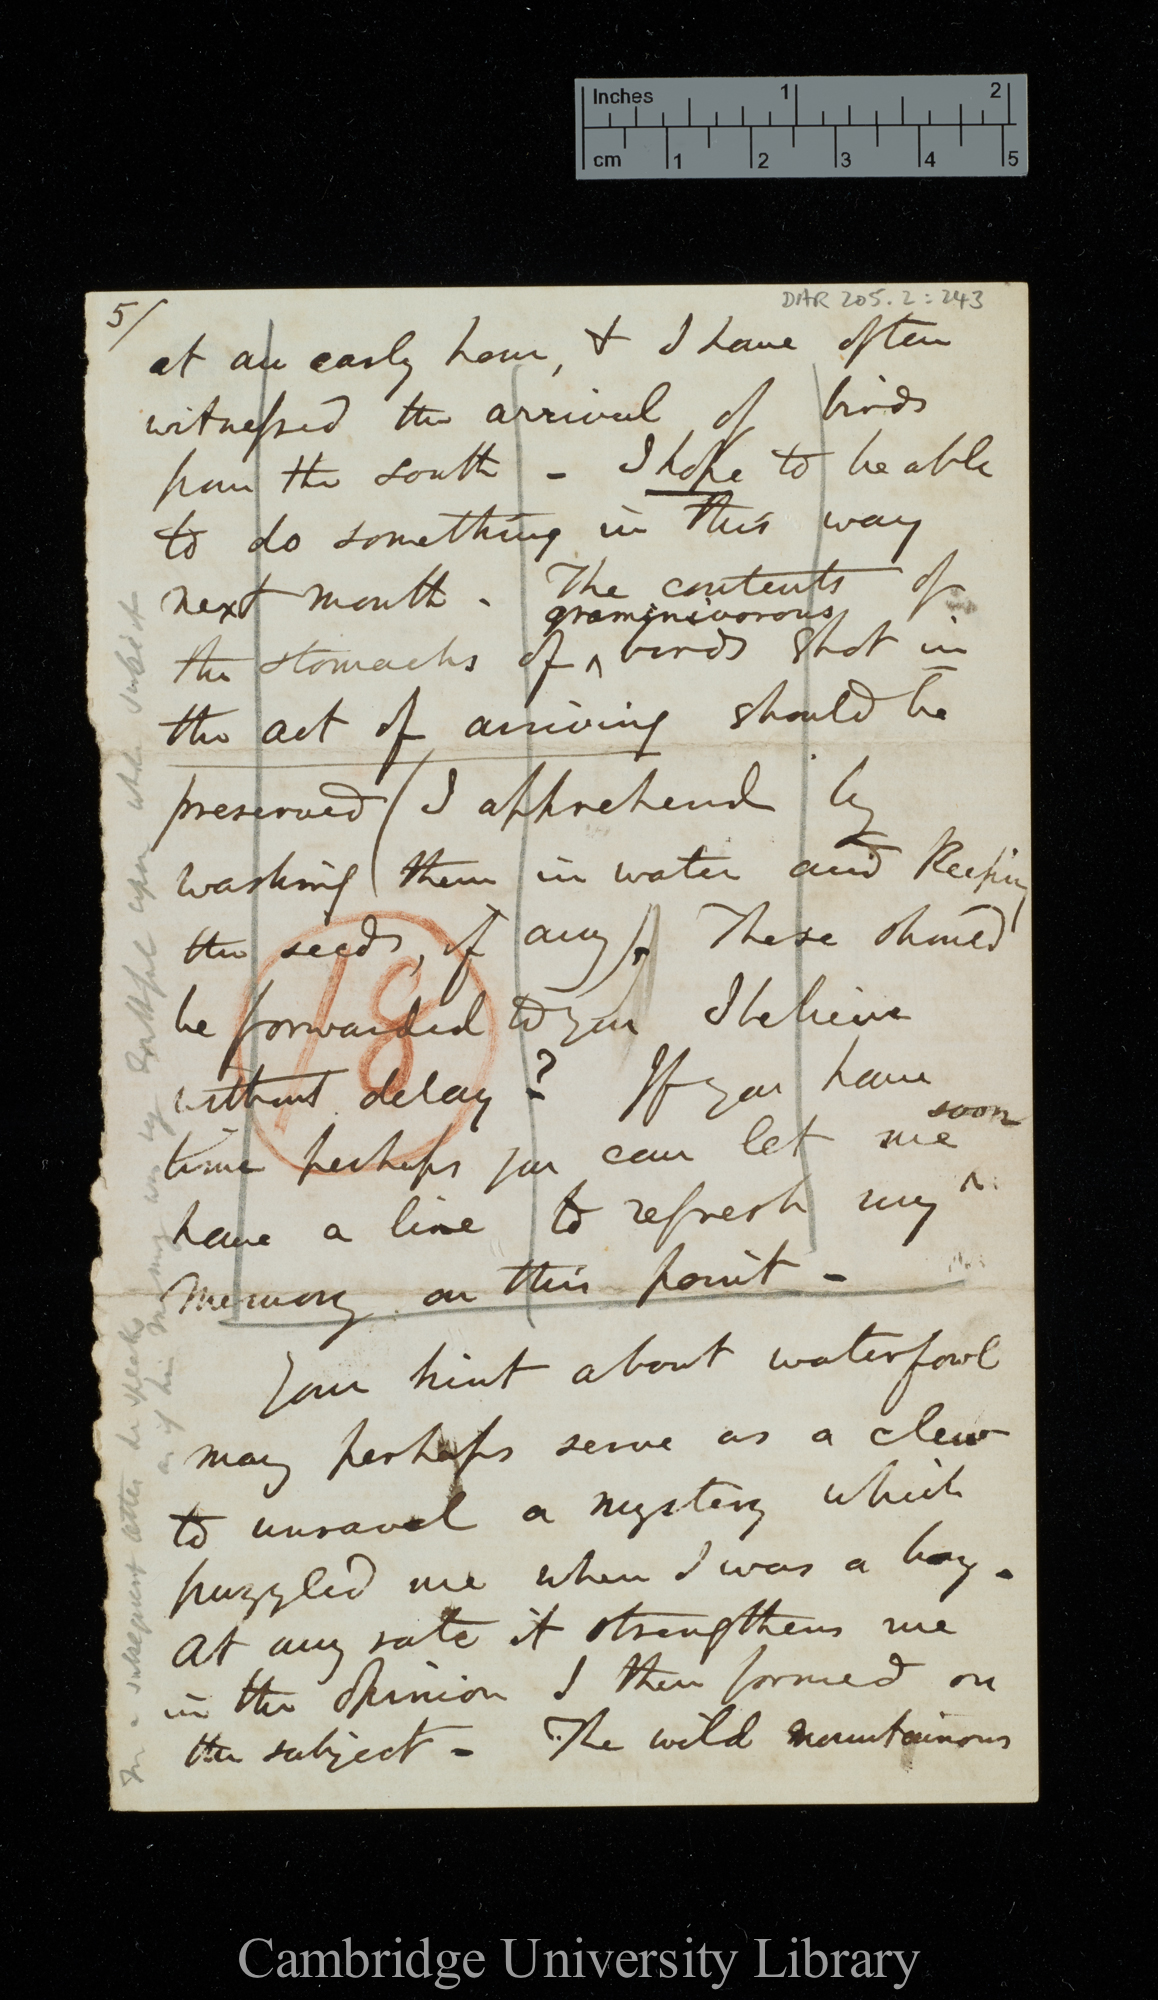 Inches 1 2
cm 1 2 3 4 5
DAR 205.2:243
5/
at an early hour, & I have often
witnessed the arrival of birds
from the south - I hope to be able
to do something in this way
next month. The contents of
graminivorous
the stomachs of ^ birds shot in
the act of arriving should be
preserved (I apprehend by
washing them in water and Keeping
the seeds, if any). These should
be forwarded to you I believe
without delay? If you have
soon
time perhaps you can let me ^
have a line to refresh my
memory on this point -
18
Your hint about waterfowl
may perhaps serve as a clew
to unravel a mystery which
puzzled me when I was a boy.
At any rate it strengthens me
in the opinion I then formed on
the subject - The wild mountainous
In a subsequent letter he speaks
as if his memory was by upon the subject
Cambridge University Library